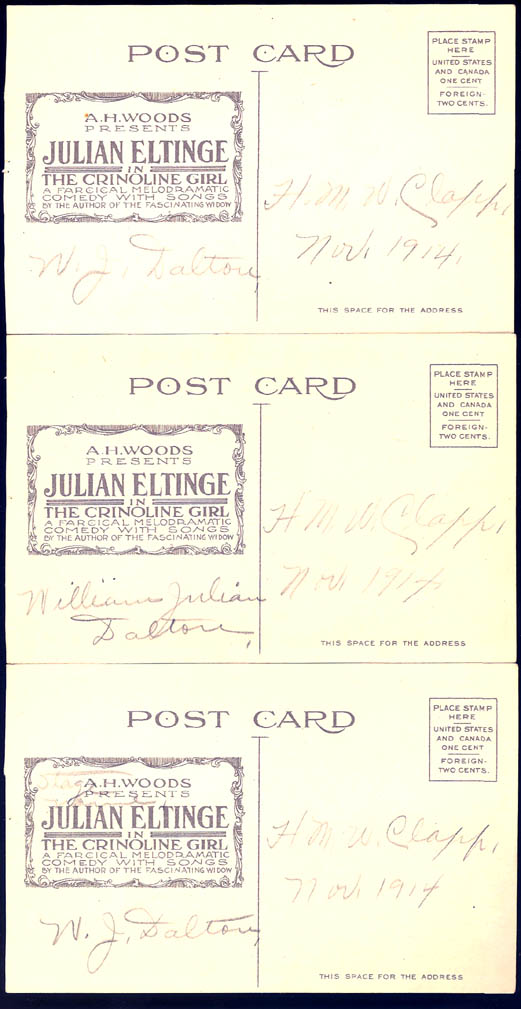 POST CARD
PLACE STAMP
HERE
UNITED STATES
AND CANADA
ONE CENT
FOREIGN-
TWO CENTS.
A.H.WOODS
PRESENTS
JULIAN ELTINGE
IN
THE CRINOLINE GIRL
A FARCICAL MELODRAMATIC
COMEDY WITH SONGS
BY THE AUTHOR OF THE FASCINATING WIDOW
W. J. Dalton,
H. M. W. Clapp,
Nov. 1914.
THIS SPACE FOR THE ADDRESS
POST CARD
PLACE STAMP
HERE
UNITED STATES
AND CANADA
ONE CENT
FOREIGN-
TWO CENTS.
A.H.WOODS
PRESENTS
JULIAN ELTINGE
IN
THE CRINOLINE GIRL
A FARCICAL MELODRAMATIC
COMEDY WITH SONGS
BY THE AUTHOR OF THE FASCINATING WIDOW
William Julian
Dalton,
H. M. W. Clapp,
Nov. 1914.
THIS SPACE FOR THE ADDRESS
POST CARD
PLACE STAMP
HERE
UNITED STATES
AND CANADA
ONE CENT
FOREIGN-
TWO CENTS.
Stage
name,
A.H.WOODS
PRESENTS
JULIAN ELTINGE
IN
THE CRINOLINE GIRL
A FARCICAL MELODRAMATIC
COMEDY WITH SONGS
BY THE AUTHOR OF THE FASCINATING WIDOW
W. J. Dalton,
H. M. W. Clapp,
Nov. 1914
THIS SPACE FOR THE ADDRESS